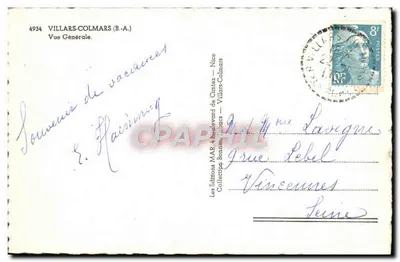 4934 VILLARS-COLMARS (B.-A.)
Vue Générale.
Souvenir de vacances
E.
Les Editions MAR, boulevard de Cimiez - Nice
Collection - Villars-Colmars
8F
RF
CPARAMA
Mr et Mme Lavigne
9 rue Lebel
Vincennes
Seine